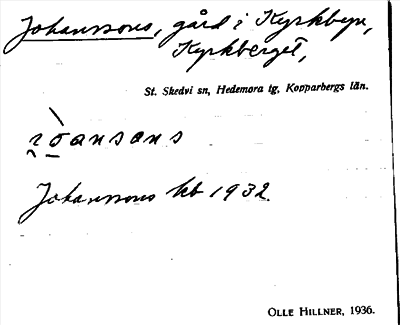 Johanssons, gård i Kyrkbyn,
Kyrkberget,
St. Skedvi sn, Hedemora tg, Kopparbergs län.
Johanssons kb 1932.
OLLE HILLNER, 1936.